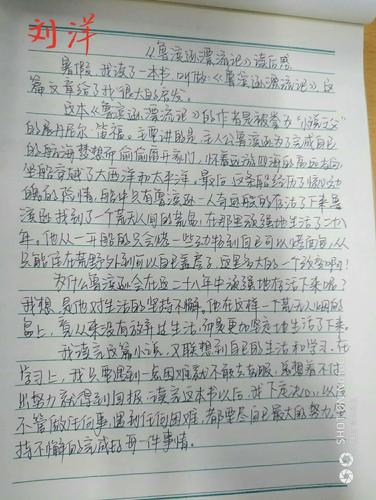 刘洋
《鲁滨逊漂流记》读后感
暑假,我读了一本书,叫做《鲁滨逊漂流记》,这
篇文章给了我很大的启发。
这本《鲁滨逊漂流记》的作者是被誉为“小说之父”
的展丹尼尔·笛福。主要讲的是,主人公鲁滨逊为了完成自己
的航海梦想而偷偷离开家门,怀着远游四海的高远志向,
坐船穿越了大西洋和太平洋。最后,这条船经历了惊心动
魄的险情,船中只有鲁滨逊一人奇迹般的存活了下来,鲁
滨逊找到了一个荒无人间的荒岛,在那里顽强地生活了二十八
年。他从一开始的只会做一些 到自己可以 ,从
只能住在荒野外到可以自己盖房子,这是多大的一个改变啊!
为什么鲁滨逊会在这二十八年中顽强地存活下来呢?
我想,是他对生活的坚持不懈。他在这样一个荒无人烟的
岛上,看从来没有放弃过生活,而是更加坚定地生活了下来。
我读完这篇小说,又联想到自己的生活和学习,在
学习上,我只要遇到一点困难就不敢去克服,总想着不付
出努力就得到回报,读完这本书以后,我下定决心,以后
不管做任何事,遇到任何困难,都要尽自己最大的努力,坚
持不懈的完成好每一件事情。
SHOT ON